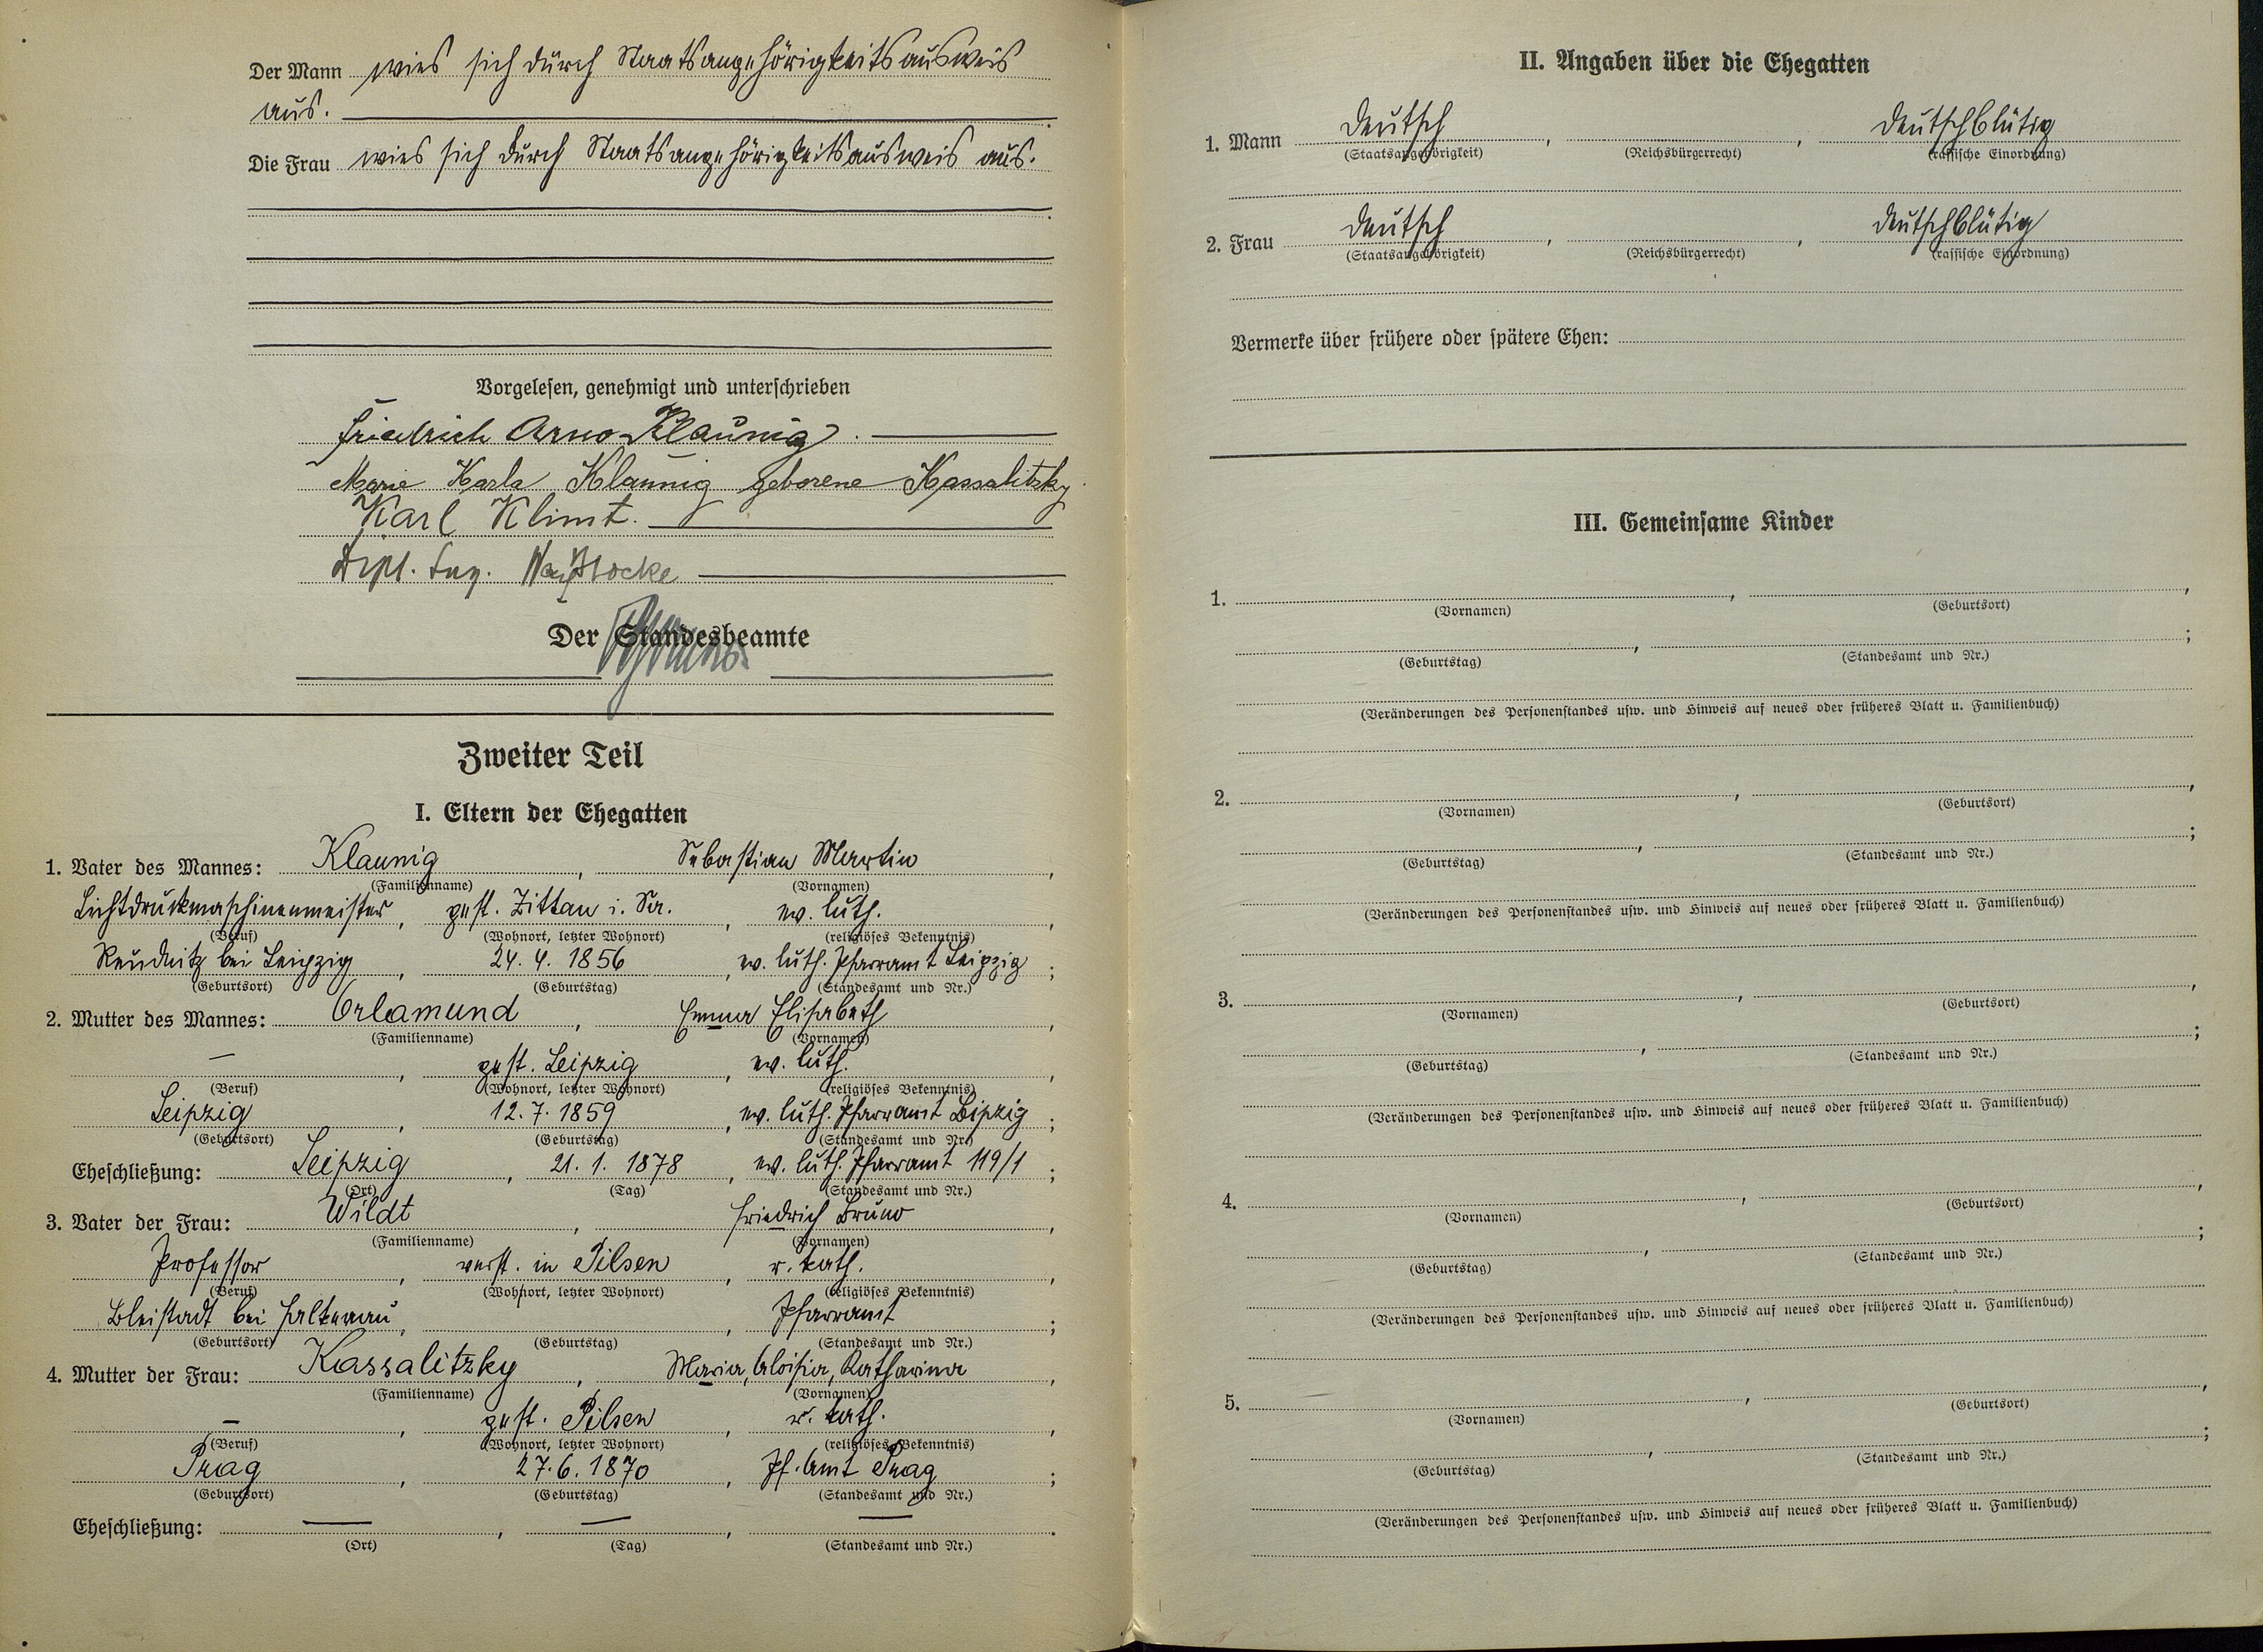 Der Mann wies sich durch Staatsangehörigkeitsausweis
aus.
Die Frau wies sich durch Staatsangehörigkeitsausweis aus.
Vorgelesen, genehmigt und unterschrieben
Friedrich Arno Klaunig.
Marie Karla Klaunig geborene Kassalitzky
Karl Klimt.
Dipl. Ing.
Der Standesbeamte
Zweiter Teil
I. Eltern der Ehegatten
1. Vater des Mannes: Klaunig, Sebastian Martin,
(Familienname) (Vornamen)
Lichtdruckmaschinenmeister, gest. Zittau i. Sa., ev. luth.,
(Beruf) (Wohnort, letzter Wohnort) (religiöses Bekenntnis)
Reudnitz bei Leipzig, 24. 4. 1856, ev. luth. Pfarramt Leipzig;
(Geburtsort) (Geburtstag) (Standesamt und Nr.)
2. Mutter des Mannes: Orlamund, Emma Elisabeth,
(Familienname) (Vornamen)
—, gest. Leipzig, ev. luth.,
(Beruf) (Wohnort, letzter Wohnort) (religiöses Bekenntnis)
Leipzig, 12. 7. 1859, ev. luth. Pfarramt Leipzig;
(Geburtsort) (Geburtstag) (Standesamt und Nr.)
Eheschließung: Leipzig, 21. 1. 1878, ev. luth. Pfarramt 119/1;
(Ort) (Tag) (Standesamt und Nr.)
3. Vater der Frau: Wildt, Friedrich Bruno,
(Familienname) (Vornamen)
Professor, verst. in Pilsen, r. kath.,
(Beruf) (Wohnort, letzter Wohnort) (religiöses Bekenntnis)
Bleistadt bei Falkenau, , Pfarramt;
(Geburtsort) (Geburtstag) (Standesamt und Nr.)
4. Mutter der Frau: Kassalitzky, Maria, Aloisia, Katharina,
(Familienname) (Vornamen)
—, gest. Pilsen, r. kath.,
(Beruf) (Wohnort, letzter Wohnort) (religiöses Bekenntnis)
Prag, 27. 6. 1870, Pf. Amt Prag;
(Geburtsort) (Geburtstag) (Standesamt und Nr.)
Eheschließung: —, —, —.
(Ort) (Tag) (Standesamt und Nr.)
II. Angaben über die Ehegatten
1. Mann deutsch, , deutschblütig
(Staatsangehörigkeit) (Reichsbürgerrecht) (rassische Einordnung)
2. Frau deutsch, , deutschblütig
(Staatsangehörigkeit) (Reichsbürgerrecht) (rassische Einordnung)
Vermerke über frühere oder spätere Ehen:
III. Gemeinsame Kinder
1. , ,
(Vornamen) (Geburtsort)
, ;
(Geburtstag) (Standesamt und Nr.)
(Veränderungen des Personenstandes usw. und Hinweis auf neues oder früheres Blatt u. Familienbuch)
2. , ,
(Vornamen) (Geburtsort)
, ;
(Geburtstag) (Standesamt und Nr.)
(Veränderungen des Personenstandes usw. und Hinweis auf neues oder früheres Blatt u. Familienbuch)
3. , ,
(Vornamen) (Geburtsort)
, ;
(Geburtstag) (Standesamt und Nr.)
(Veränderungen des Personenstandes usw. und Hinweis auf neues oder früheres Blatt u. Familienbuch)
4. , ,
(Vornamen) (Geburtsort)
, ;
(Geburtstag) (Standesamt und Nr.)
(Veränderungen des Personenstandes usw. und Hinweis auf neues oder früheres Blatt u. Familienbuch)
5. , ,
(Vornamen) (Geburtsort)
, ;
(Geburtstag) (Standesamt und Nr.)
(Veränderungen des Personenstandes usw. und Hinweis auf neues oder früheres Blatt u. Familienbuch)